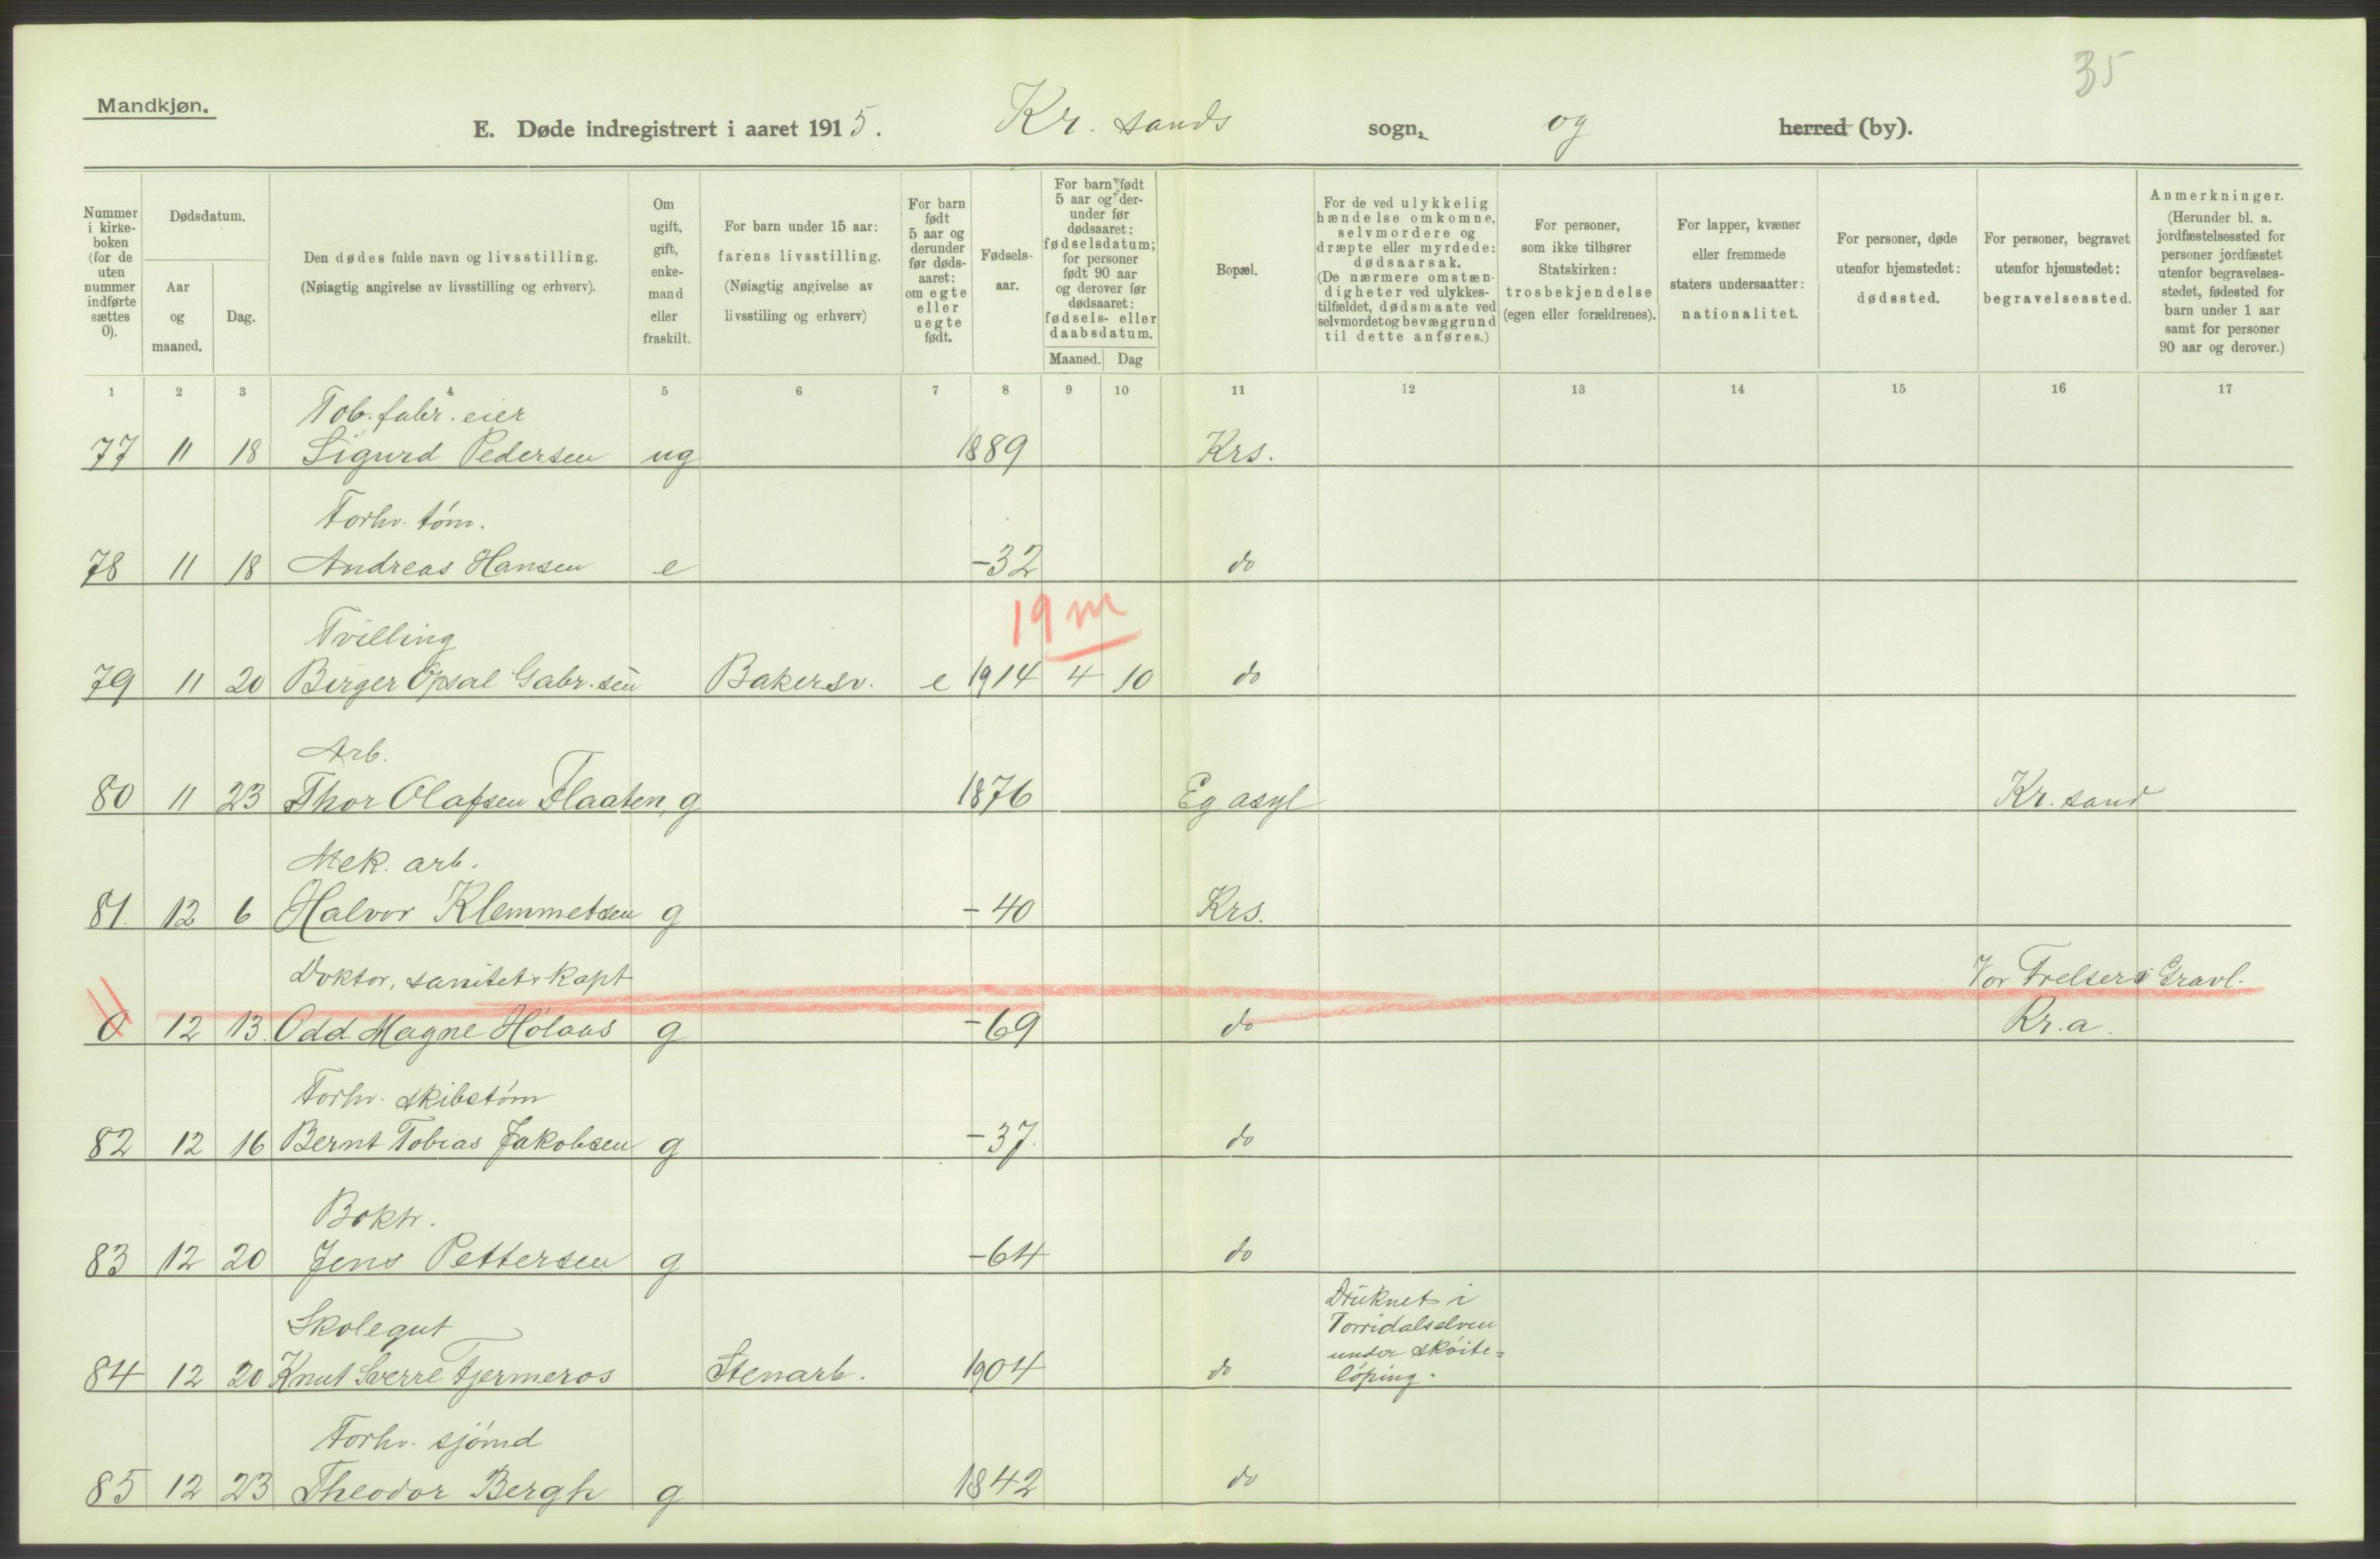 35
Mandkjøn.
E. Døde indregistrert i aaret 1915. Kr. sands sogn, og herred (by).
Nummer i kirke-boken (for de uten nummer indførte sættes 0).
Dødsdatum.
Aar og maaned.
Dag.
Den dødes fulde navn og livsstilling.
(Nøiagtig angivelse av livsstilling og erhverv).
Om ugift, gift, enke-mand eller fraskilt.
For barn under 15 aar:
farens livsstilling.
(Nøiagtig angivelse av livsstiling og erhverv)
For barn født 5 aar og derunder før døds-aaret: om egte eller uegte født.
Fødsels-aar.
For barn født 5 aar og der-under før dødsaaret: fødselsdatum; for personer født 90 aar og derover før dødsaaret: fødsels- eller daabsdatum.
Maaned. Dag
Bopæl.
For de ved ulykkelig hændelse omkomne, selvmordere og dræpte eller myrdede: dødsaarsak.
(De nærmere omstæn-digheter ved ulykkes-tilfældet, dødsmaate ved selvmordet og bevæggrund til dette anføres.)
For personer, som ikke tilhører Statskirken: trosbekjendelse (egen eller forældrenes).
For lapper, kvæner eller fremmede staters undersaatter: nationalitet.
For personer, døde utenfor hjemstedet: dødssted.
For personer, begravet utenfor hjemstedet: begravelsessted.
Anmerkninger.
(Herunder bl. a. jordfæstelsessted for personer jordfæstet utenfor begravelses-stedet, fødested for barn under 1 aar samt for personer 90 aar og derover.)
1 2 3 4 5 6 7 8 9 10 11 12 13 14 15 16 17
Tob. fabr. eier
77 11 18 Sigurd Pedersen ug 1889 Krs.
Forhv. tøm.
78 11 18 Andreas Hansen e -32 do
19 m
Tvilling
79 11 20 Birger Opsal Gabr.sen Bakersv. e 1914 4 10 do
Arb.
80 11 23 Thor Olafsen Flaaten, g 1876 Eg asyl Kr. sand
Mek. arb.
81. 12 6 Halvor Klemmetsen g -40 Krs.
Doktor, sanitetskapt Vor Frelsers Gravl.
0 12 13. Odd Magne Hølaas g -69 do Kr.a.
Forhv. skibstøm
82 12 16 Bernt Tobias Jakobsen g -37. do
Boktr.
83 12 20 Jens Pettersen g -64 do
Skolegut
84 12 20 Knut Sverre Tjermeros Stenarb. 1904 do
Druknet i
Torridalselven
under skøite=
løping.
Forhv. sjømd
85 12 23 Theodor Bergh g 1842 do